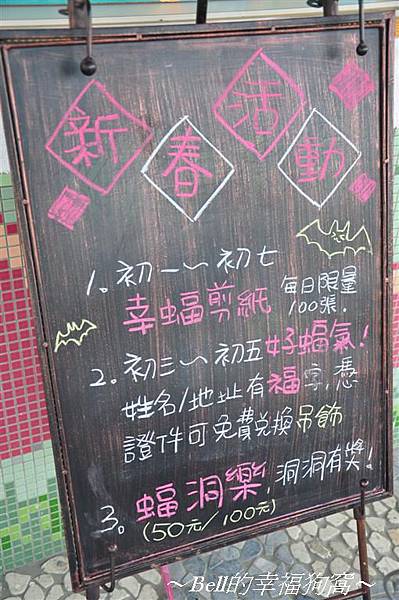 新春活動
1。初一~初七
幸蝠剪紙 每日限量
100張.
2。初三~初五好蝠氣!
姓名/地址有福字,憑
證件可免費兌換吊飾
3。蝠洞樂,洞洞有獎!
(50元/100元)
~Bell的幸福狗窩~